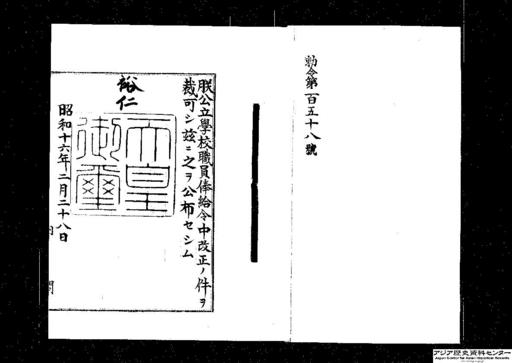 勅令第百五十八號
朕公立學校職員俸給令中改正ノ件ヲ
裁可シ茲ニ之ヲ公布セシム
裕仁
天皇
御璽
昭和十六年二月二十八日
アジア歴史資料センター
Japan Center for Asian Historical Records